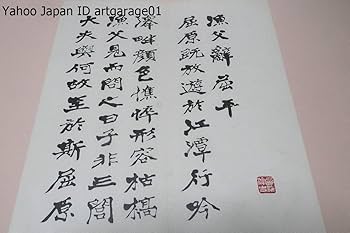 Yahoo Japan ID artgarage01
漁父辭 屈平
屈原既放遊於江潭行吟
澤畔顏色憔悴形容枯槁
漁父見而問之曰子非三閭
大夫與何故至於斯屈原